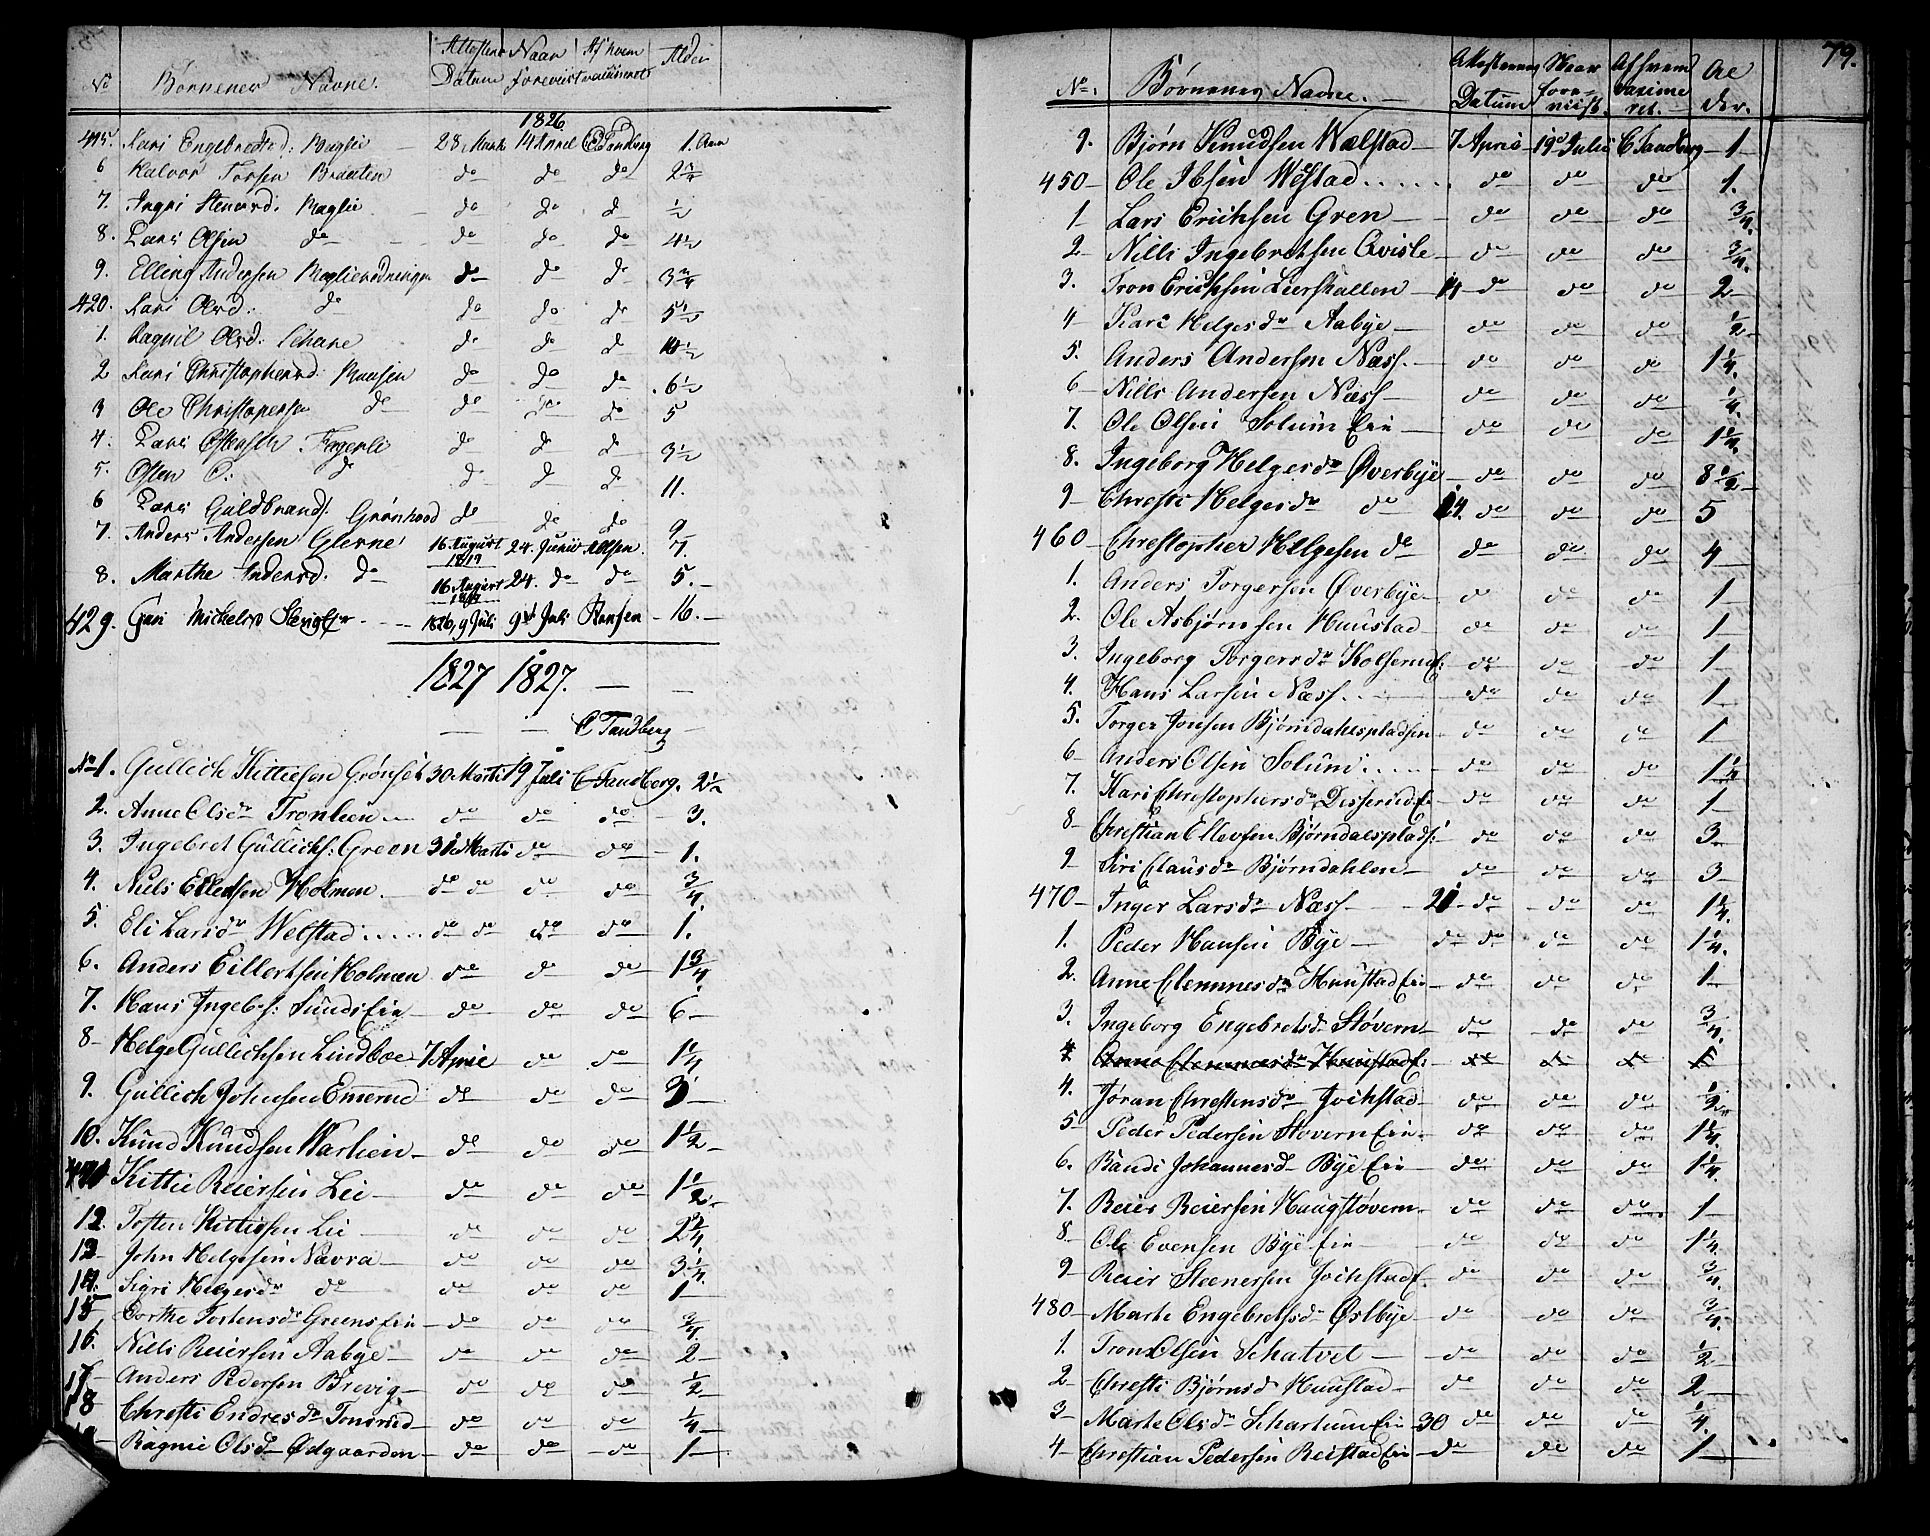 No Børnenes Navne. Attestens Datum Naar foreviist Af hvem vaccineret Alder
1826
415. Kari Engebretsd: Moglie 28 Marti 14 April C Tandberg 1. Aar
6 Halvor Torsen Braaten do do do 2 1/4
7. Ingri Stenersd. Moglie do do do 1/2
8. Lars Olsen do do do do 4 1/2
9. Elling Andersen Moglieeedningen do do do 3 3/4
420. Kari Olsd: do do do do 5 1/2
1. Raguil Olsd: do do do 10 1/2
2 Kari Christophersd: do do do 6 1/2
3 Ole Christopersen do do do do 5
4. Lars Østensen Fagerli do do do 3 1/2
5. Østen O: do do do do 11.
6 Lars Guldbrands: Grønhoed do do do 9
7. Anders Andersen Glerne 16 August 1819 24. Junii Olsen 7.
8. Marthe Andersd. do 16 August 1819 24. do do 5.
429. Guri Michelsd 1826, 9 Juli 9de Juli Hansen 16.
1827 1827.
C Tandberg
No 1. Gullich Kittilsen Grønset 30 Marti 19 Juli C Tandberg. 2 1/2
2. Anne Olsdr Tronlien do do do 3.
3. Ingebret Gullichs: Green 31 Marti do do 1.
4. Niels Ellensen Holmen do do do do 3/4.
5. Eli Larsdr Welstad do do do do 1.
6. Anders Eillertsen Holmen do do do 1 3/4.
7. Hans Ingebrs: Sunds Ein do do do 6
8 Helge Gullichsen Lindboe 7 Aprie do do 1 1/4
9. Gullich Johnsen Emerud do do do 3
10. Knud Knudsen Warlien do do do 1 1/2
11 Kittil Reiersen Lie do do do 1 1/2
12. Tosten Kittilsen Lie do do do 2 3/4
13 John Helgesen Navra do do do 3 1/4.
14. Sigri Helgesdr do do do do 1
15 Dorthe Tostensdr Greens Ein do do do 3/4
16. Nills Reiersen Aabye do do do 2
17 Anders Pedersen Brevig do do do 1/2
18 Christi Endresdr Tonsrud do do do 1/4
Ragnie Olsdr Ødgaarden do do do 1
79.
No. Børnenes Navne. Attesternes Datum Naar foreviist Af hvem vaccineret. Alder.
9. Bjørn Knudsen Wælstad 7 April 19de Julii C Tandberg 1
450 Ole Ibsen Wæstad do do do 1.
1 Lars Erichsen Gren do do do 3/4.
2 Nills Ingebretsen Qvisle do do do 3/4.
3. Tron Erichsen Lierskallen 14 do do do 2
4 Kari Helgesdr Aabye do do do 1/2
5. Anders Andersen Næss. do do do 1 1/4.
6 Nills Andersen Næss do do do 1/4.
7. Ole Olsen Solum Ein do do do 1 1/4.
8. Ingeborg Helgesdr Øverbye do do do 8 1/2
9 Christi Helgesdr do 14. do do do 5
460 Christopher Helgesen do do do do 4
1. Anders Torgersen Øverbye do do do 1
2. Ole Asbjørnsen Huustad do do do 1
3. Ingeborg Torgersdr Kolserud E: do do do 1
4. Hans Larsen Næss do do do 1
5. Torger Jonsen Bjørndahlspladsen do do do 1
6 Anders Olsen Solum do do do 1 1/4
7. Kari Christophersdr Disserud Ei do do do 1
8 Christian Ellevsen Bjørndalsplads: do do do 3
9 Siri Clausdr Bjørndahlen do do do 3
470 Inger Larsdr Næss 21 do do do 1 1/4.
1. Peder Hansen Bye do do do do 1 1/4.
2. Anne Clemmesdr Huustad Ein do do do 1
3. Ingeborg Engebretsdr Støvern do do do 3/4.
4. Anne Clemmesdr Huustad E: do do do 1
4. Jøran Christensdr Jochstad do do do 1/2
5 Peder Pedersen Støvern Ein do do do 1 1/4.
6. Randi Johannesd Bye Ein do do do 1 1/4.
7. Reier Reiersen Haugstøvern do do do 1
8 Ole Evensen Bye Ein do do do 1 1/4.
9 Reier Steenersen Jochstad E. do do do 3/4.
480 Marte Engebretsdr Østbye do do do 3/4.
1. Tron Olsen Schatvet do do do 1/2
2 Christi Bjørnsd Huustad do do do 2
3 Marte Olsdr Schartum Ein 30 do do do 1/4.
4 Christian Pedersen Reistad Ein do do do 1